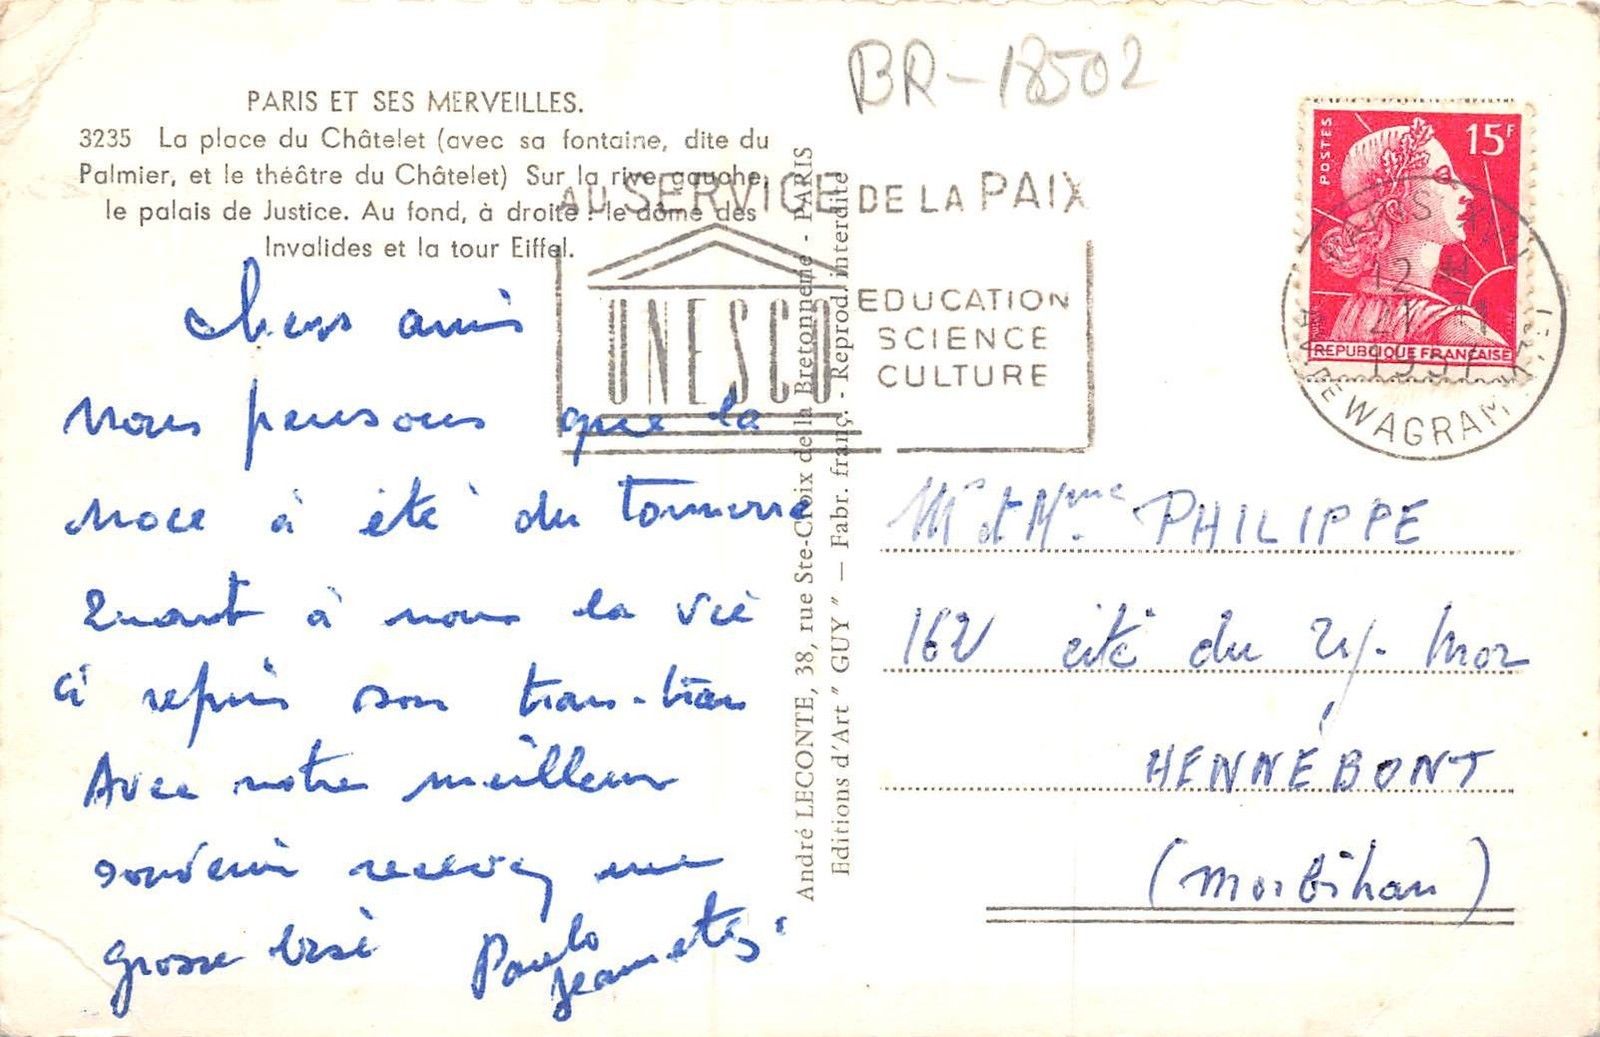 BR-18502
PARIS ET SES MERVEILLES.
3235 La place du Châtelet (avec sa fontaine, dite du
Palmier, et le théâtre du Châtelet) Sur la rive gauche,
le palais de Justice. Au fond, à droite : le dôme des
Invalides et la tour Eiffel.
AU SERVICE DE LA PAIX
UNESCO
EDUCATION
SCIENCE
CULTURE
POSTES
15F
REPUBLIQUE FRANÇAISE
PARIS XVII
12 H
1957
AV. DE WAGRAM
Chers amis
Nous pensons que la
noce à été du tonnerre
Quant à nous la vie
à repris son tran-tran
Avec notre meilleur
souvenir recevez une
grosse bise Paulo
Jeannette
André LECONTE, 38, rue Ste-Croix de la Bretonnerie - PARIS
Editions d'Art "GUY" — Fabr. franç. - Reprod. interdite
Mr et Mme PHILIPPE
162 cité du
HENNEBONT
(Morbihan)